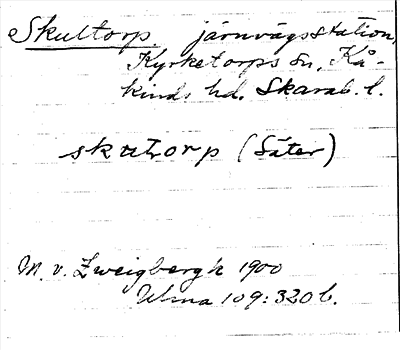 Skultorp, järnvägsstation,
Kyrketorps sn, Kå-
kinds hd. Skarab. l.
skutorp (Säter)
M. v. Zweigbergk 1900
Ulma 109:320 b.